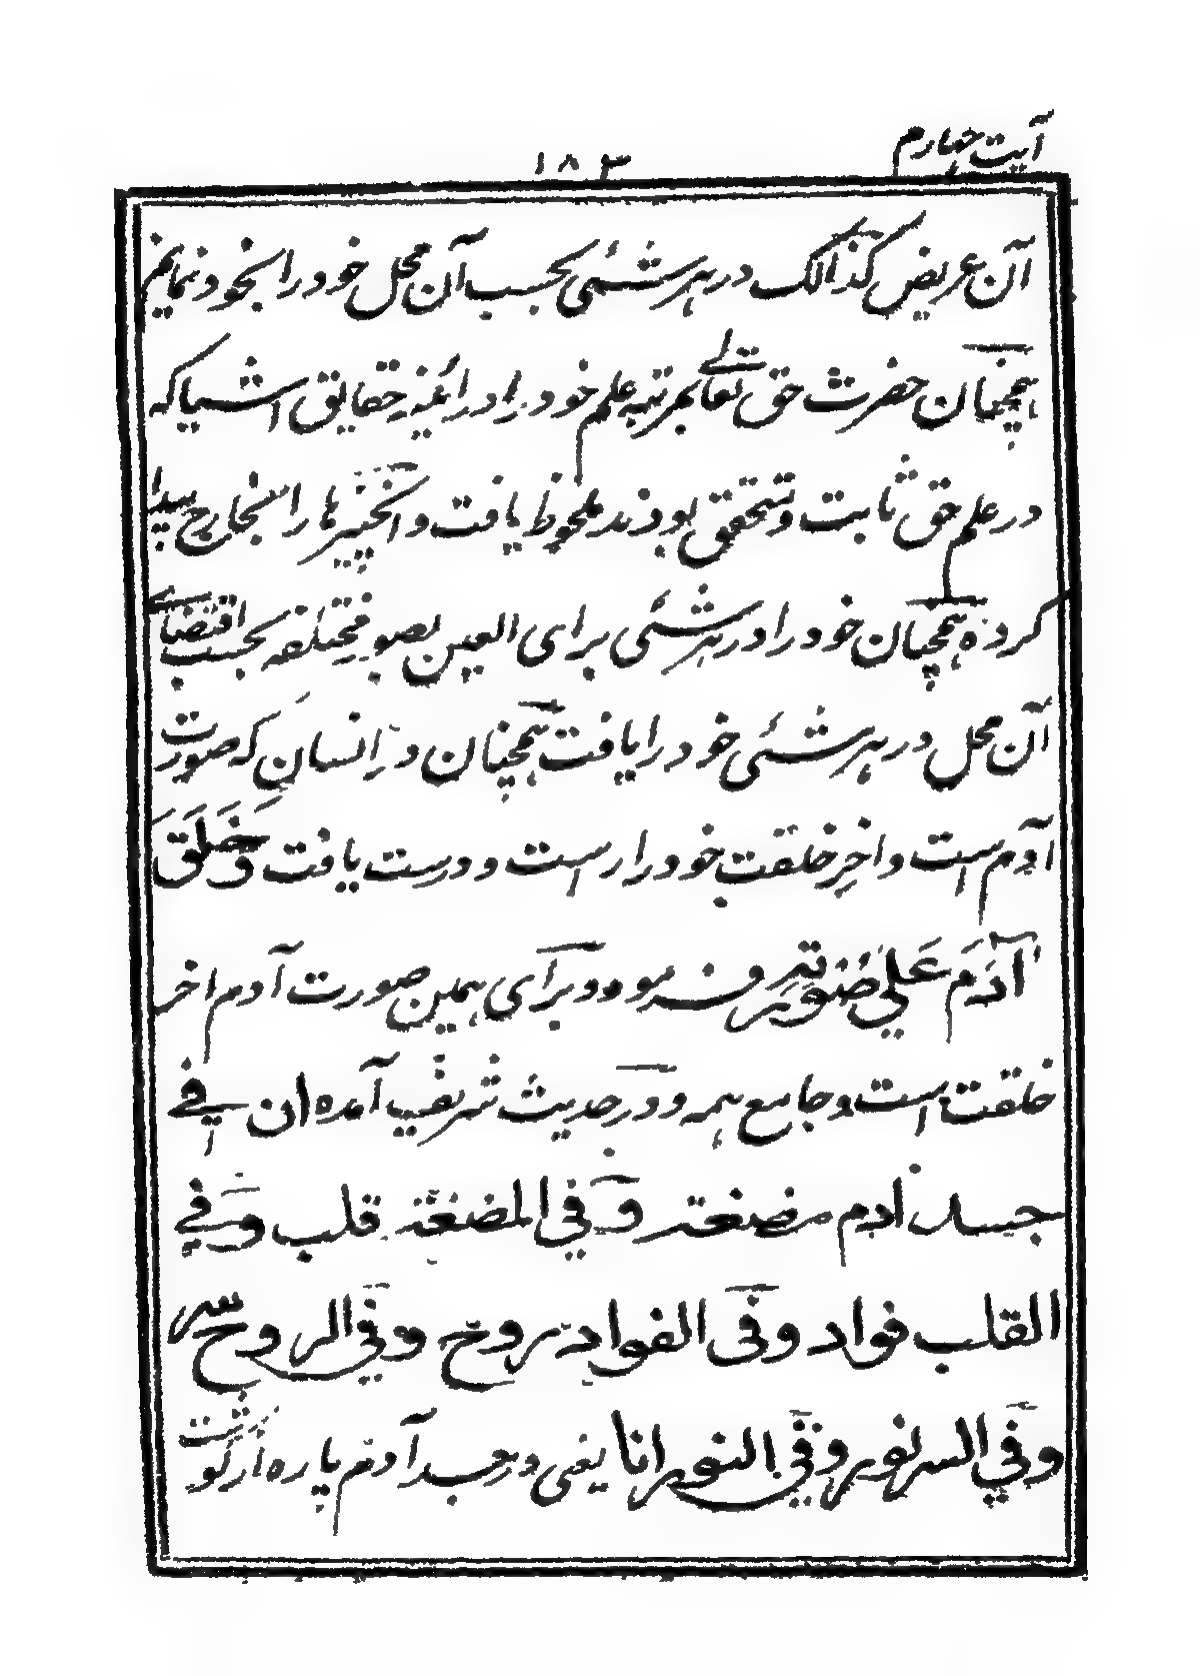 آیت چهارم
۱۸۳
آن عریض کذالک در هر شئی بحسب آن محل خود را بخود نمایم
همچنان حضرت حق تعالے بمرتبه علم خود را در ائنه حقایق اشیا که
در علم حق ثابت و متحقق بودند ملحوظ یافت و آنچیزها را بخارج پیدا
کرده همچنان خود را در هر شئی برای العین بصور مختلفه بحسب اقتضاے
آن محل در هر شئی خود را یافت همچنان در انسان که صورت
آدم است و اخر خلقت خود را راست و درست یافت وَخَلَقَ
آدَمَ عَلٰی صُوْرَتِهٖ فرموده و برای همین صورت آدم اخر
خلقت است و جامع همه و در حدیث شریف آمده ان فے
جسد ادم مضغة وفی المضغة قلب وفے
القلب فواد وفی الفواد روح وفی الروح سر
وفی السر نور وفی النور انا یعنی در جسد آدم پاره از گوشت